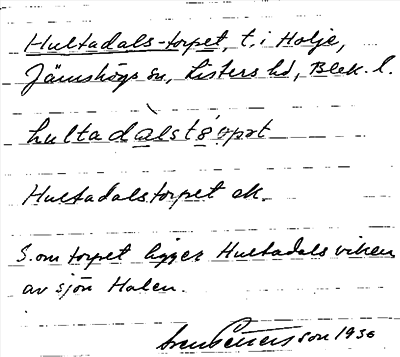 Hultadals-torpet, t. i Holje,
Jämshögs sn, Listers hd, Blek. l.
hultadàlstǫ́rpət
Hultadalstorpet ek.
S. om torpet ligger Hultadals viken
av sjön Halen.
Sven Petersson 1936